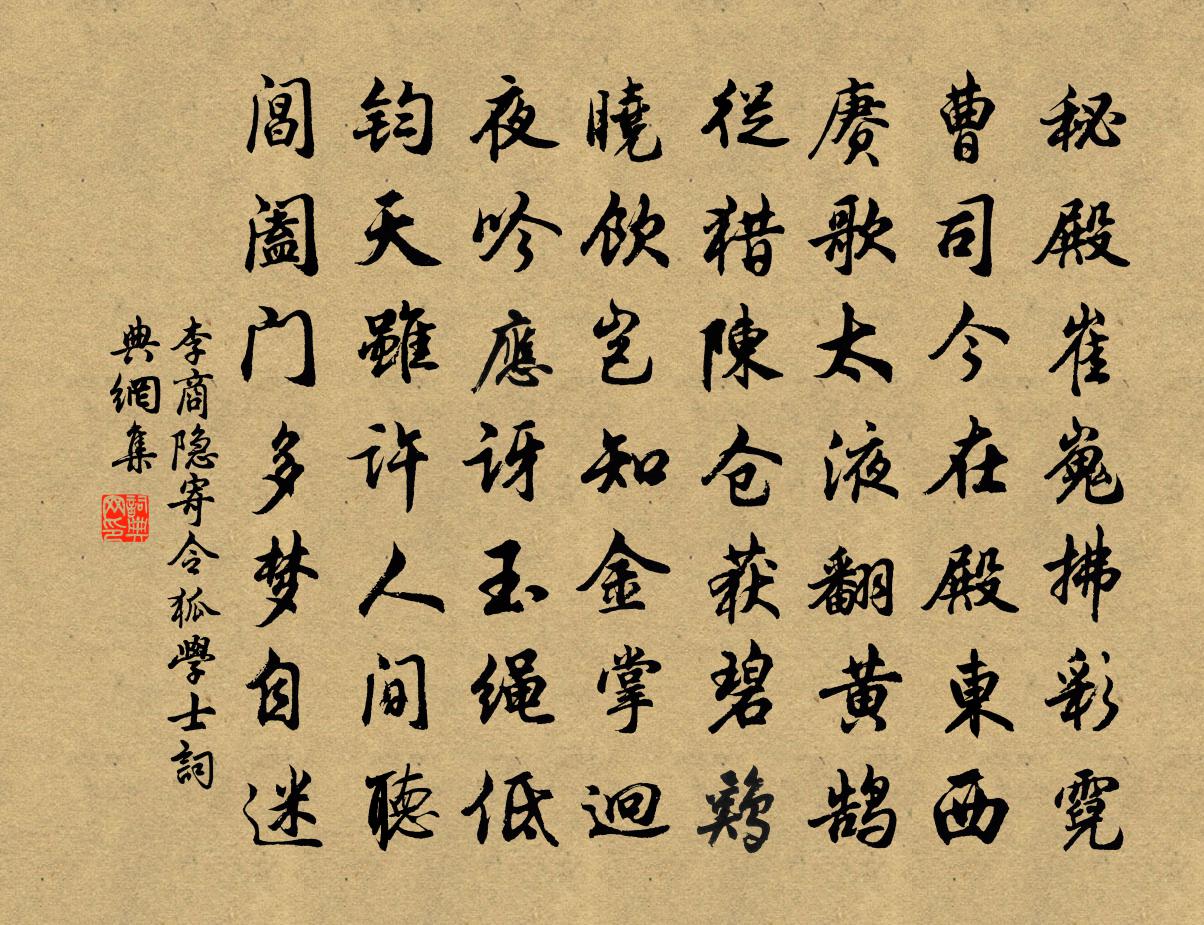 秘殿崔嵬拂彩霓
曹司今在殿東西
赓歌太液翻黄鹄
從猎陳仓获碧鷄
曉飲岂知金掌迥
夜吟應讶玉绳低
钧天雖许人间聽
阊阖门多梦自迷
李商隐寄令狐學士詞
典網集
詞典网印